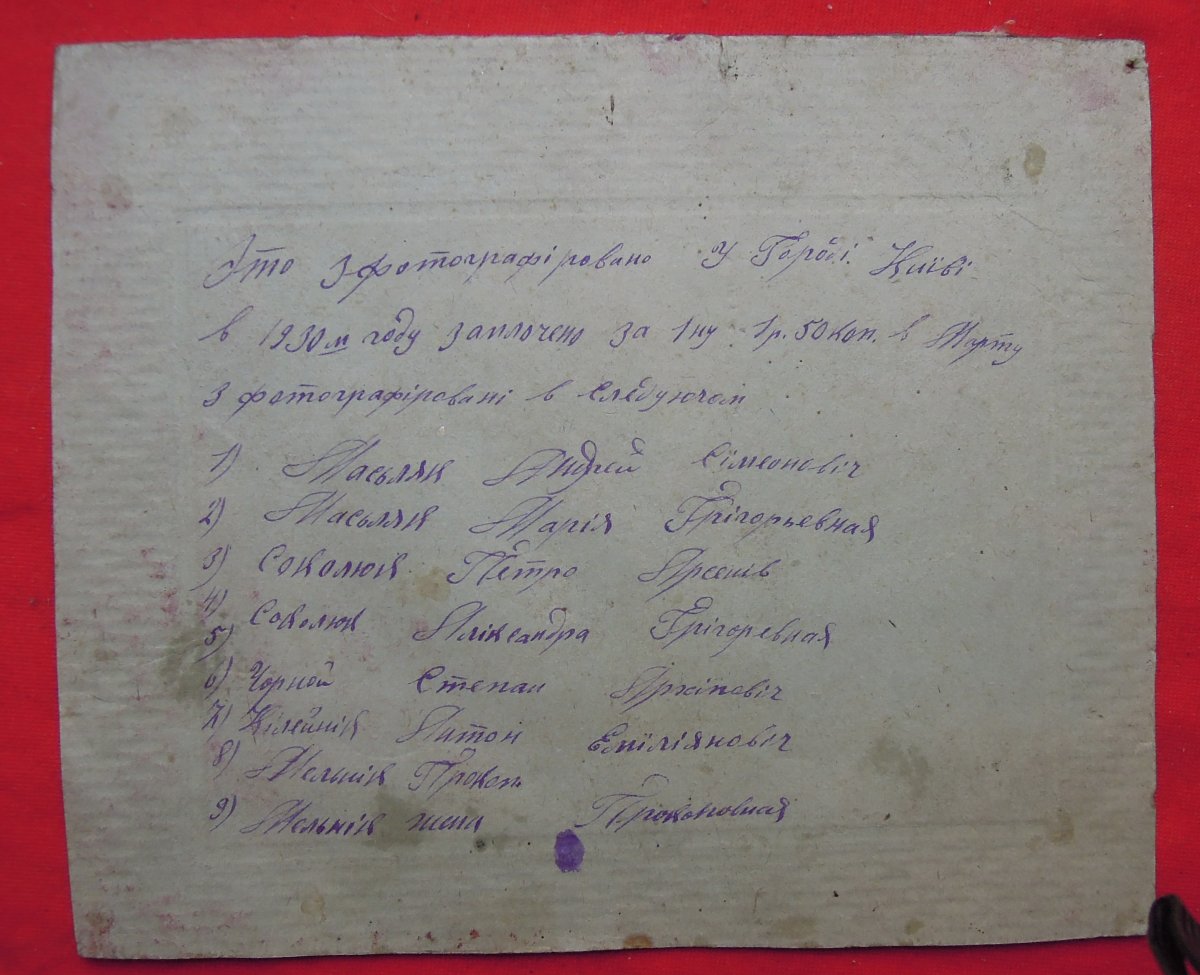 Это зфотографіровано У Городі Київі
в 1930м году заплочено за 1ну 1р. 50 коп. в Марту
зфотографіровані в следуючом
1) Масьляк Андрей Сімеоновіч
2) Масьляк Марія Грігорьевная
3) Соколюк Петро Арсенів
4) Соколюк Аліксандра Грігоревная
5)
6) Чорной Степан Архіповіч
7) Кілейнік Антон Еміліяновіч
8) Мельнік Прокоп
9) Мельнік Прокоповная